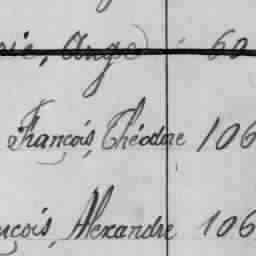 Ange 60
François, Théodore 106
nçois, Alexandre 106